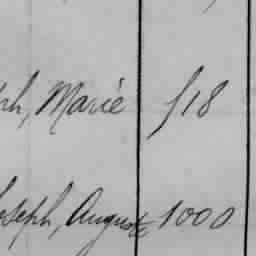 ph, Marie 518
oseph, Auguste 1000